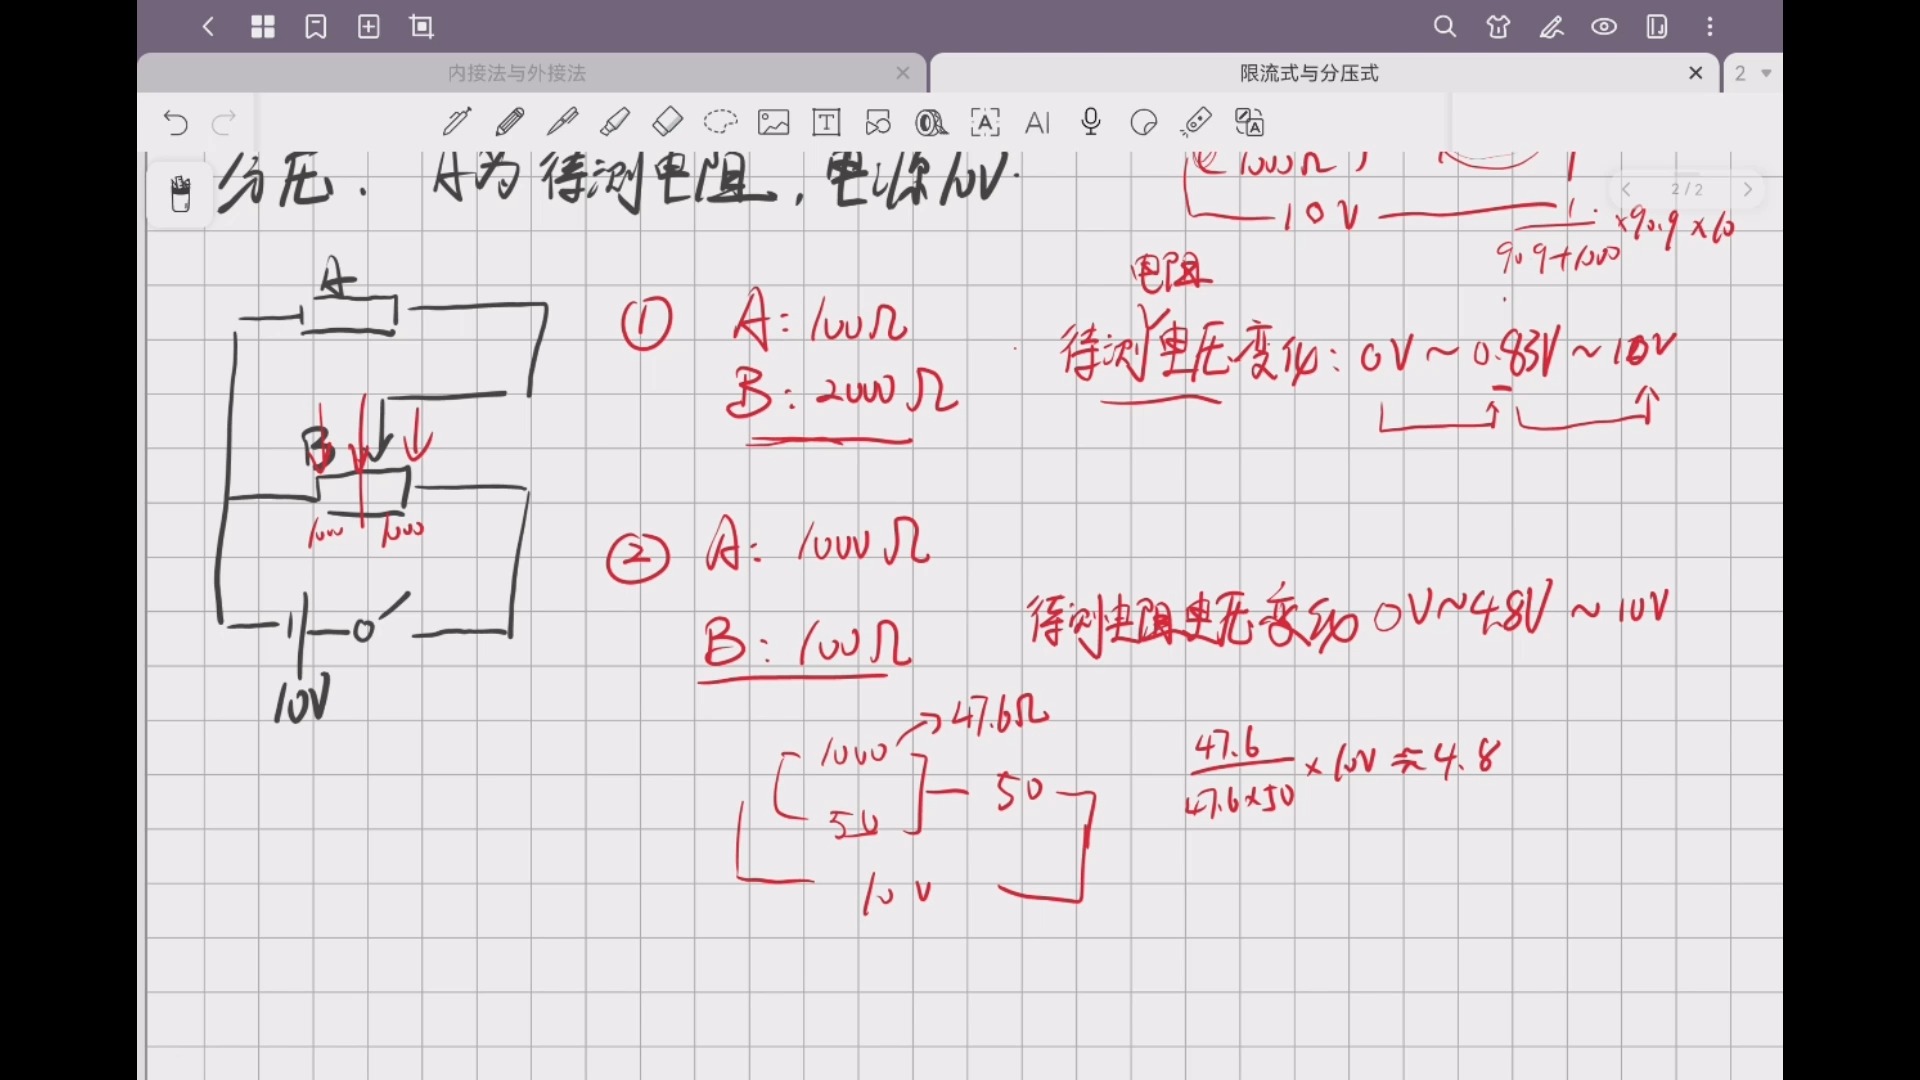 内接法与外接法
限流式与分压式
2
2 / 2
分压. A为待测电阻，电源10V.
1000Ω
10V
1
90.9+1000 ×90.9×10
A
B
1000 1000
10V
① A: 100Ω
B: 2000Ω
电阻
待测电压变化: 0V~0.83V~10V
② A: 1000Ω
B: 100Ω
待测电阻电压变化 0V~4.8V~10V
1000 →47.6Ω
50
50
10V
47.6
47.6×50 ×10V≈4.8